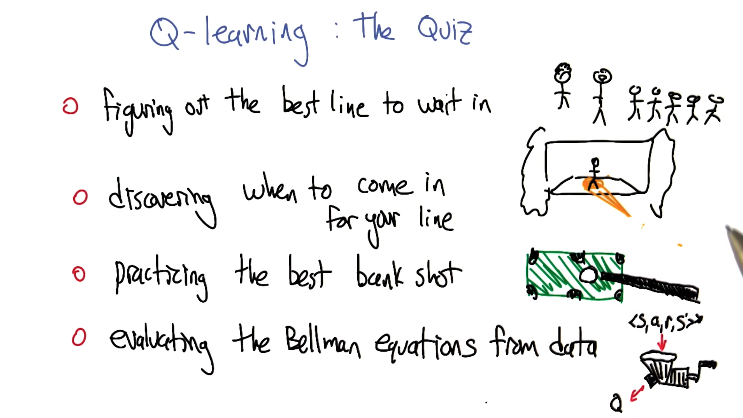 Q-learning : the Quiz
figuring out the best line to wait in
discovering when to come in
for your line
practicing the best bank shot
<s,a,r,s'>*
evaluating the Bellman equations from data
Q